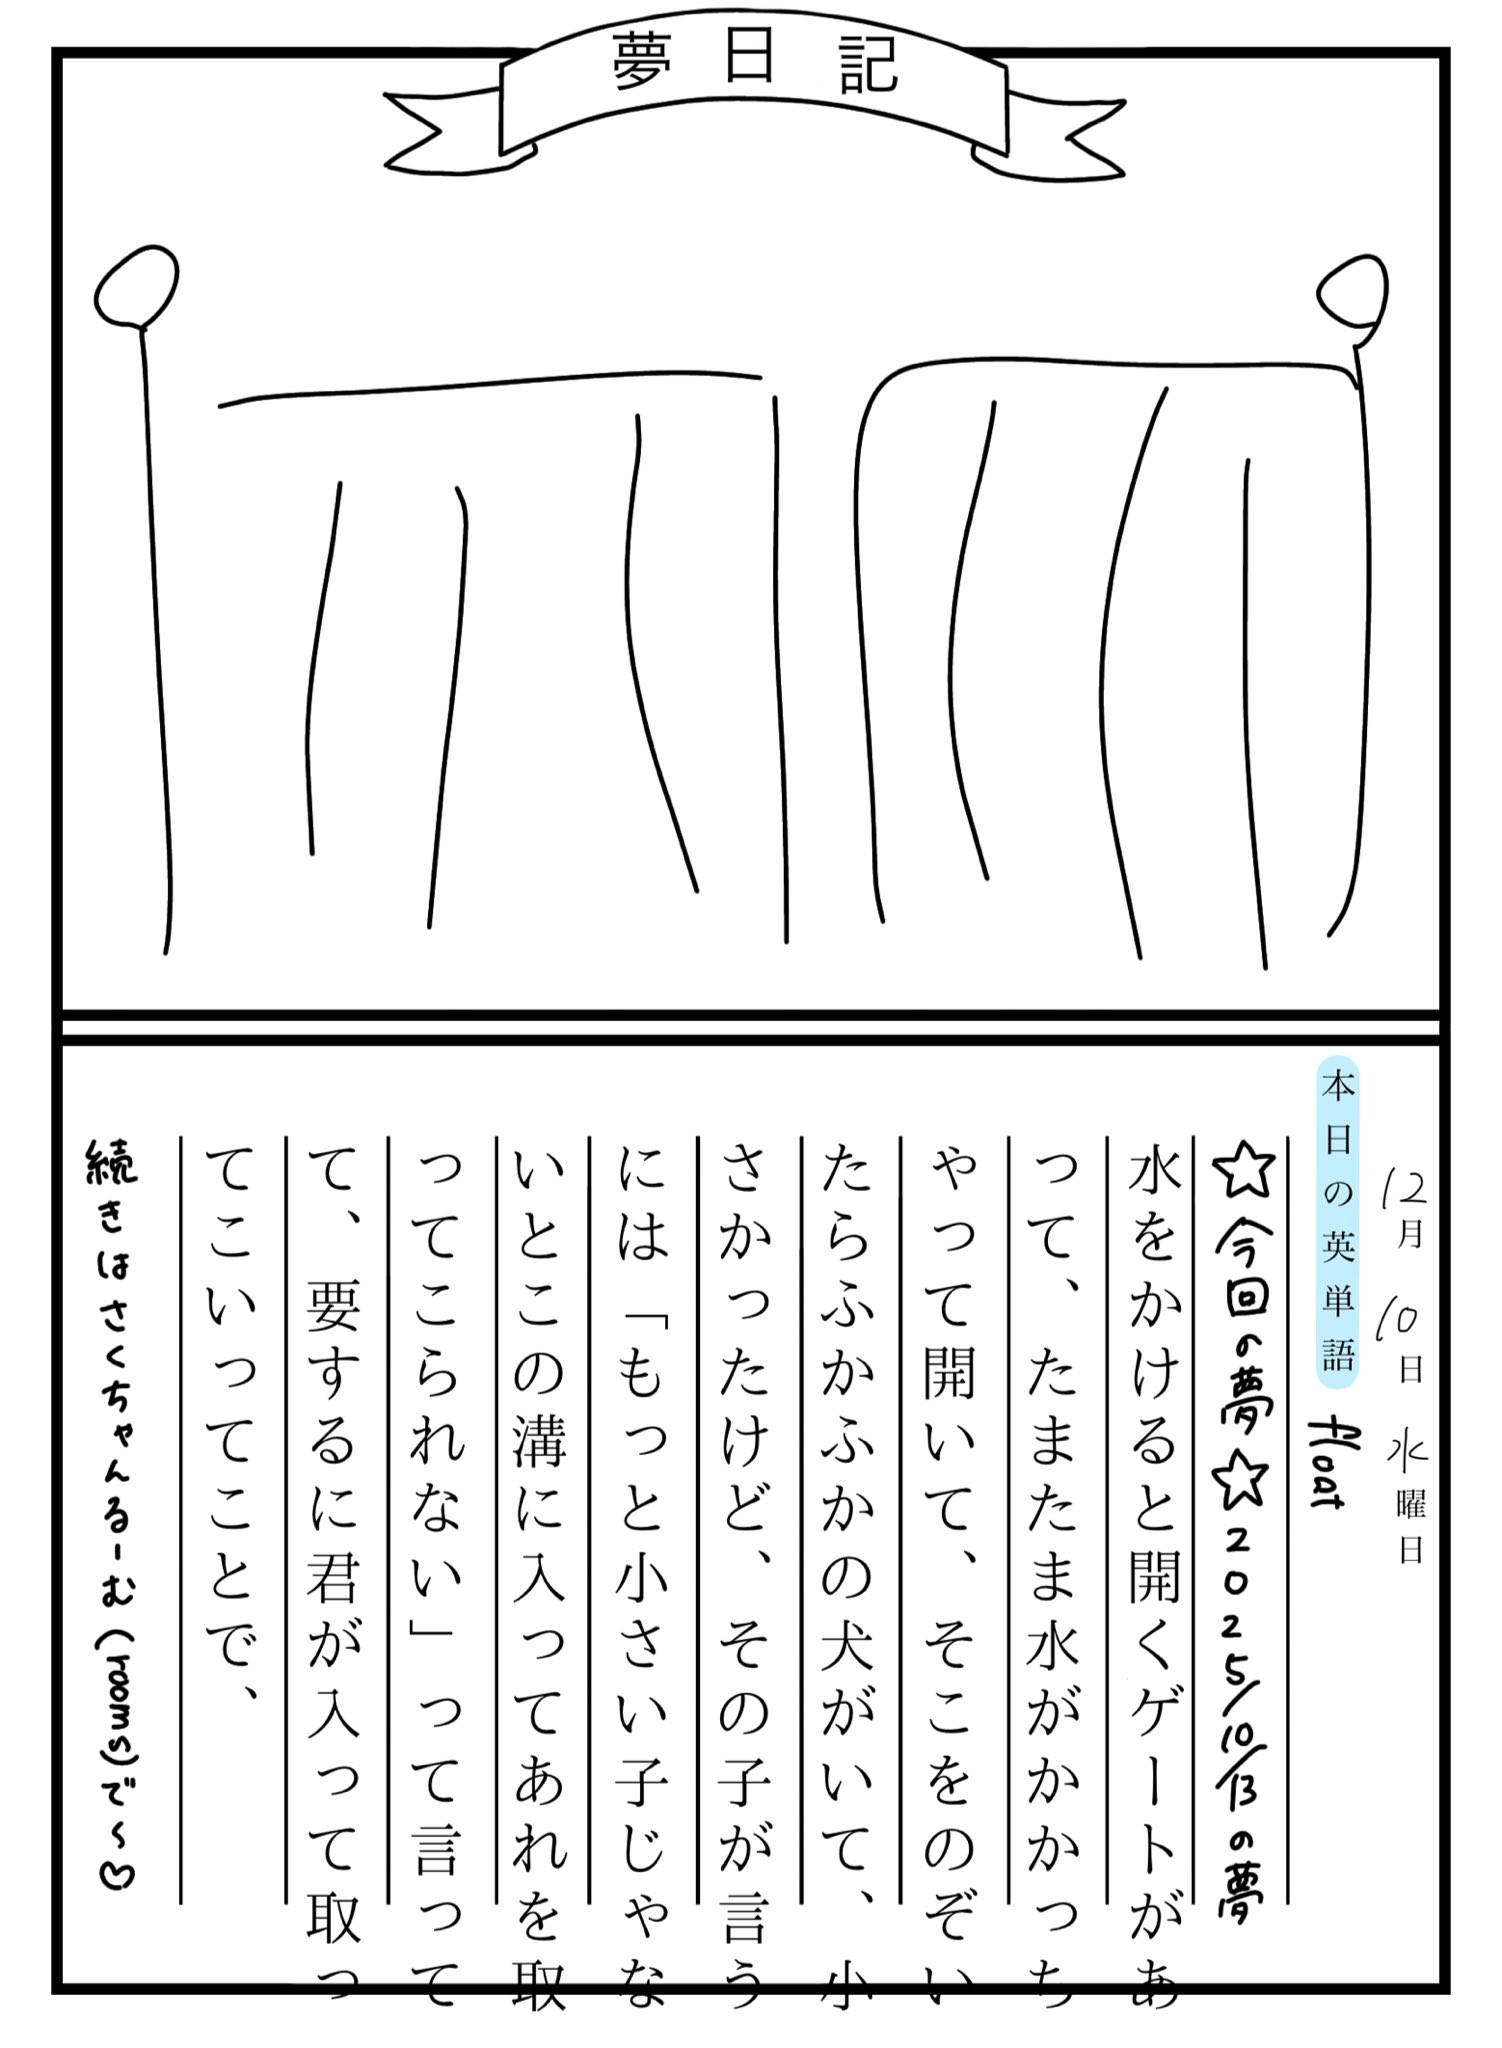 夢日記
12月10日水曜日
本日の英単語 float
☆今回の夢☆2025/10/13の夢
水をかけると開くゲートがあ
って、たまたま水がかかっち
やって開いて、そこをのぞい
たらふかふかの犬がいて、小
さかったけど、その子が言う
には「もっと小さい子じゃな
いとこの溝に入ってあれを取
ってこられない」って言って
て、要するに君が入って取っ
てこいってことで、
続きはさくちゃんるーむ(rooms)で〜♡